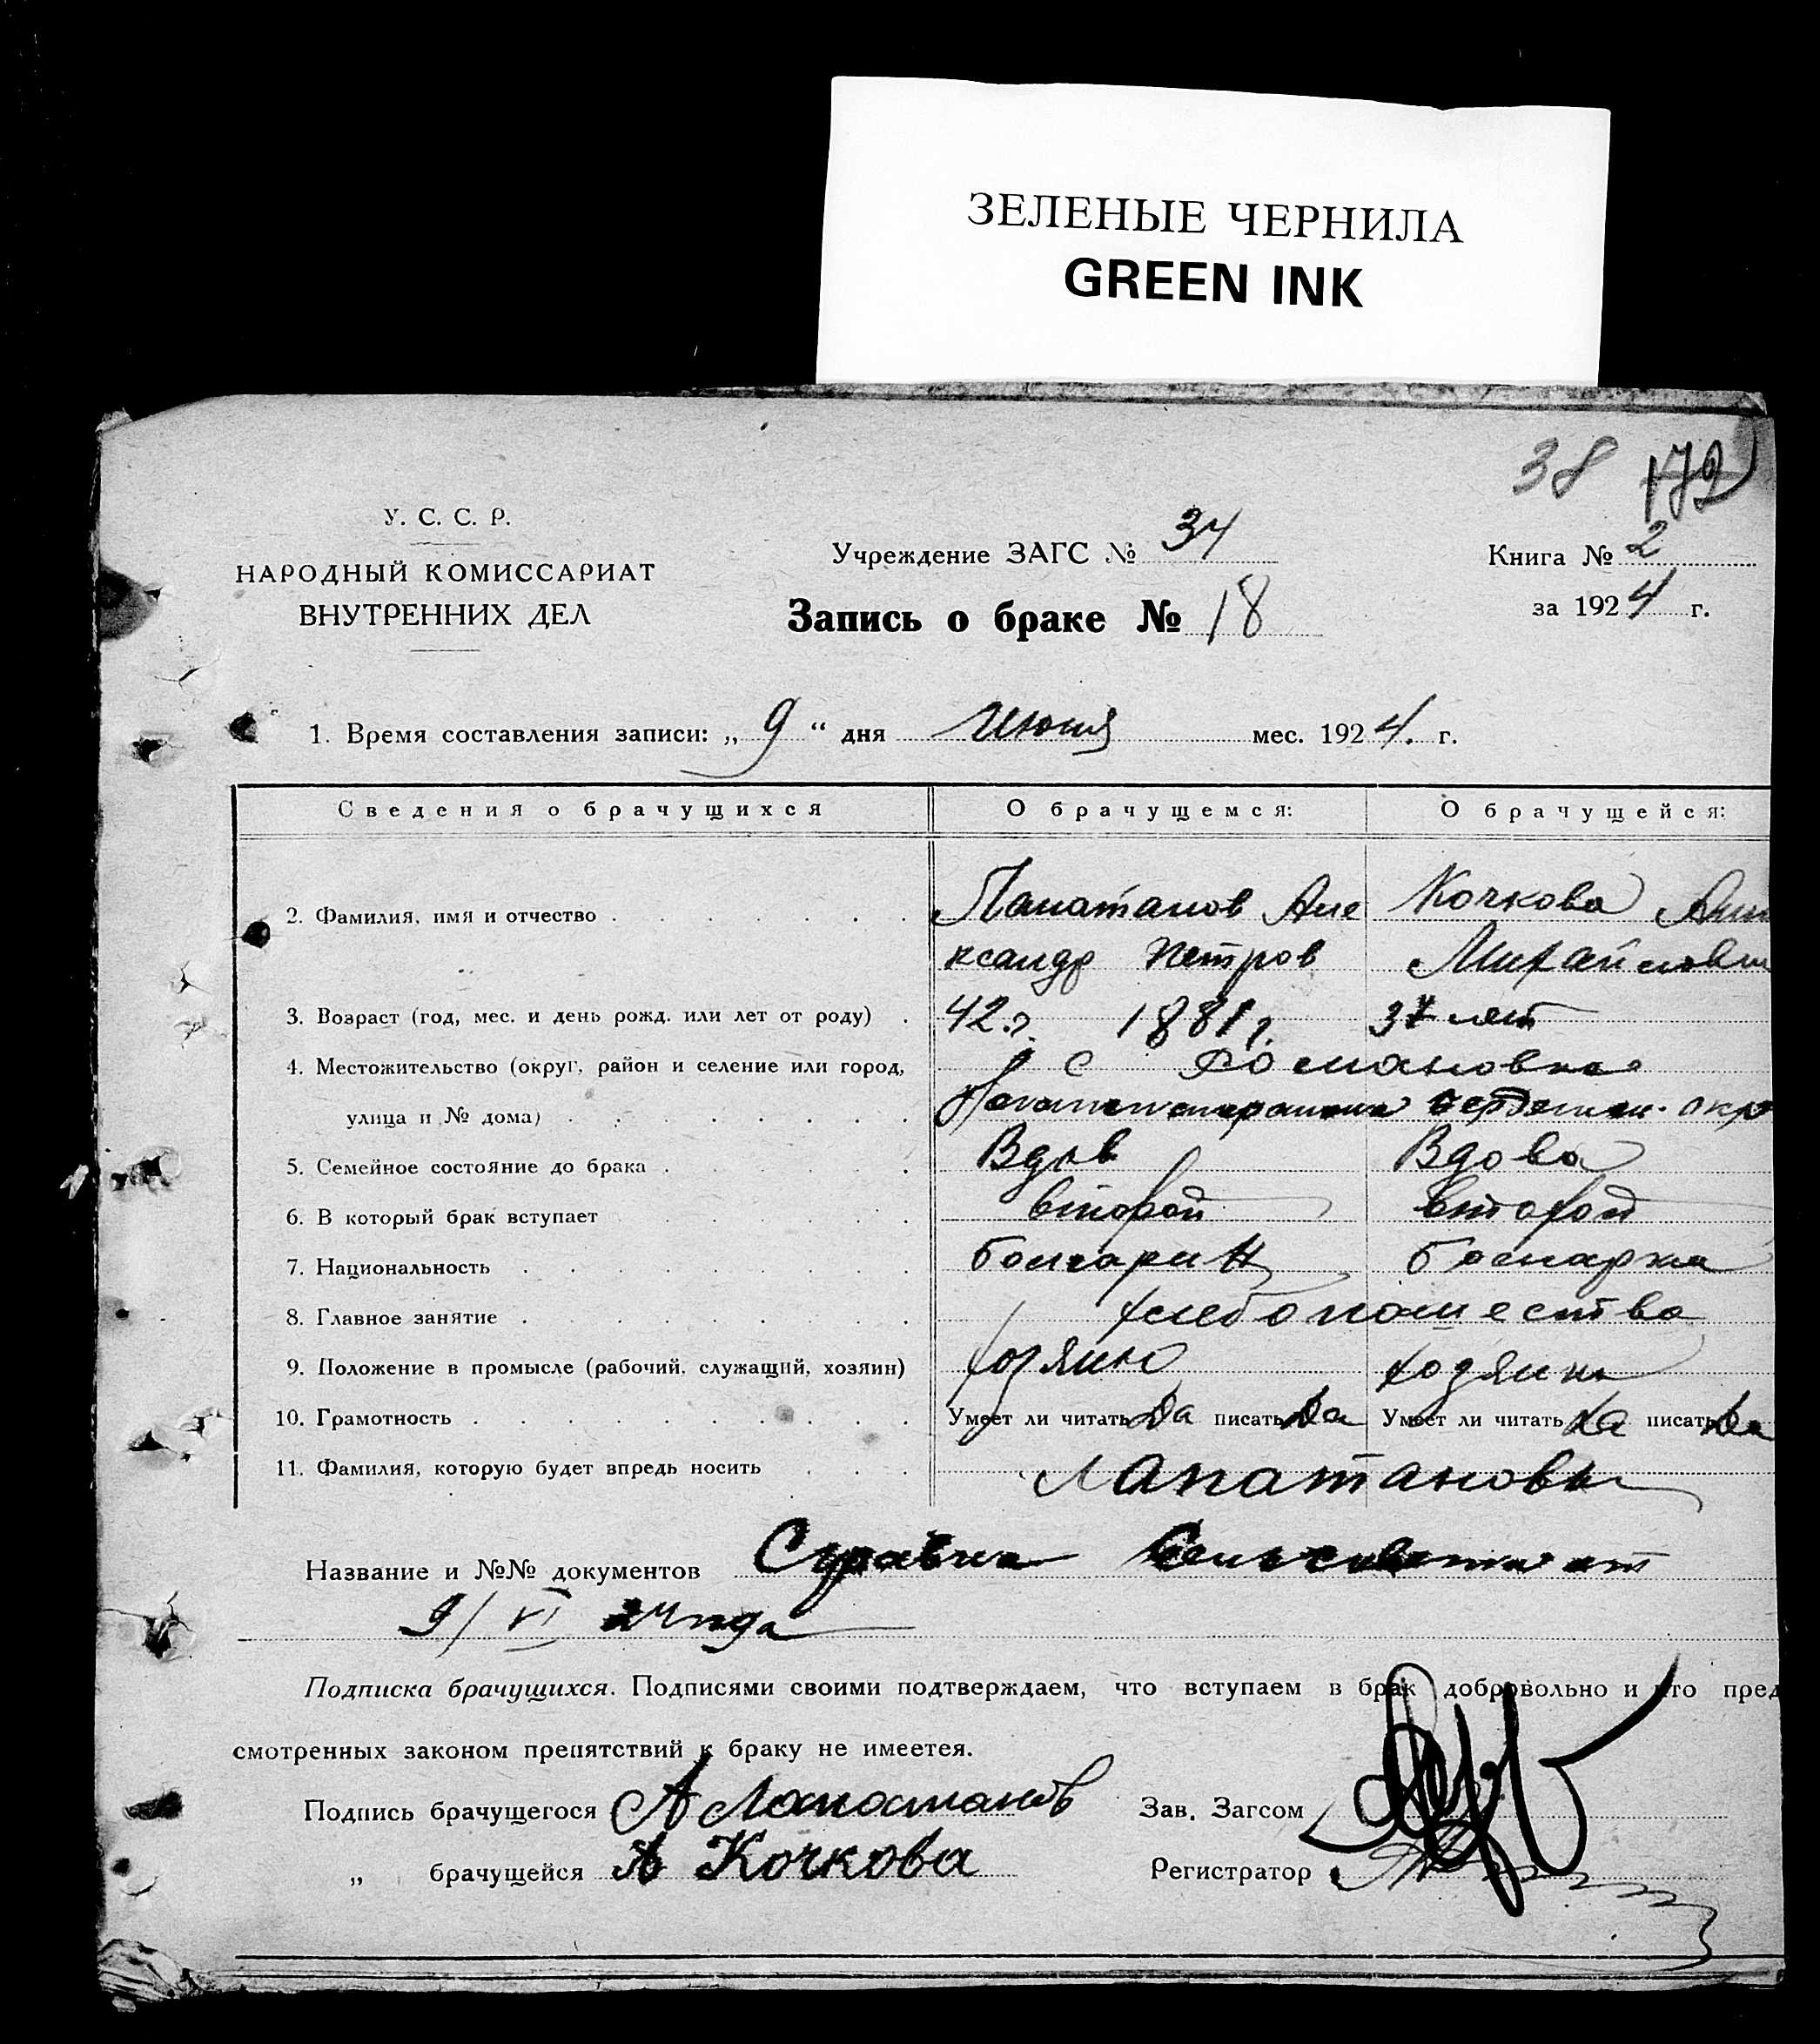 ЗЕЛЕНЫЕ ЧЕРНИЛА
GREEN INK
38 172
У. С. С. Р.
НАРОДНЫЙ КОМИССАРИАТ
ВНУТРЕННИХ ДЕЛ
Учреждение ЗАГС № 34
Запись о браке № 18
Книга № 2
за 1924 г.
1. Время составления записи: „ 9 “ дня Июня мес. 1924. г.
Сведения о брачущихся О брачущемся: О брачущейся:
2. Фамилия, имя и отчество Лапатанов Але Кочкова Анн
ксандр Петров Михайловн
3. Возраст (год, мес. и день рожд. или лет от роду) 42 г. 1881 г. 37 лет
4. Местожительство (округ, район и селение или город, С Романовка
улица и № дома) окр
5. Семейное состояние до брака Вдов Вдова
6. В который брак вступает второй второй
7. Национальность болгарин болгарка
8. Главное занятие хлебопашество
9. Положение в промысле (рабочий, служащий, хозяин) хозяин хозяика
10. Грамотность Умеет ли читать Да писать Да Умеет ли читать Да писать Да
11. Фамилия, которую будет впредь носить Лапатановы
Название и №№ документов Справка Сельсовета от
9/VI 24 года
Подписка брачущихся. Подписями своими подтверждаем, что вступаем в брак добровольно и что пред
смотренных законом препятствий к браку не имеетея.
Подпись брачущегося А Лапатанов Зав. Загсом
„ брачущейся А Кочкова Регистратор